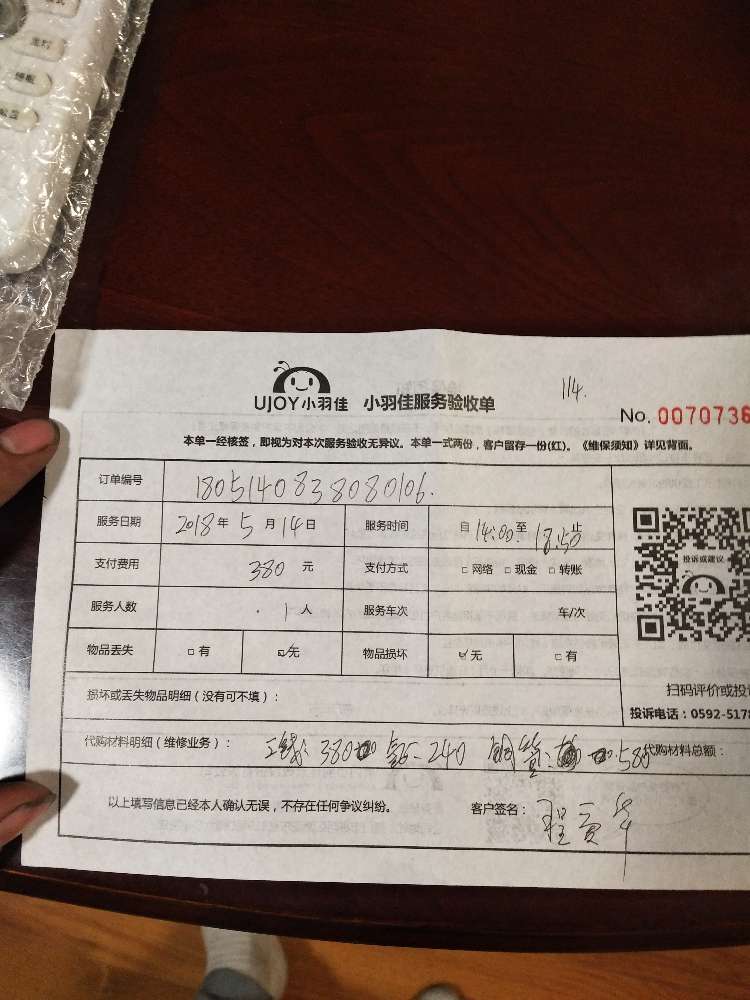 定时
睡眠
UJOY小羽佳 小羽佳服务验收单
114.
No. 0070736
本单一经核签，即视为对本次服务验收无异议。本单一式两份，客户留存一份(红)。《维保须知》详见背面。
订单编号 1805140838080106.
服务日期 2018年5月14日 服务时间 自14:00至18:50止
支付费用 380元 支付方式 □网络 □现金 □转账
服务人数 1人 服务车次 车/次
物品丢失 □有 ☑无 物品损坏 ☑无 □有
投诉或建议
扫码评价或投诉
投诉电话：0592-5178
损坏或丢失物品明细（没有可不填）：
代购材料明细（维修业务）： 380 240 铜管: 580 代购材料总额：
以上填写信息已经本人确认无误，不存在任何争议纠纷。 客户签名：程